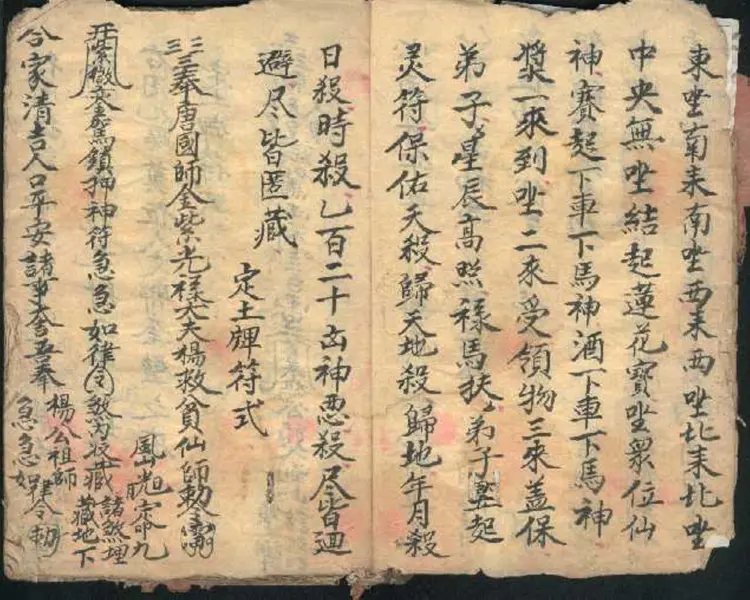 東坐南来南坐西来西坐北来北坐
中央無坐結起蓮花寶坐眾位仙
神賽起下車下馬神酒下車下馬神
漿一來到坐二來受領物三來盖保
弟子星辰高照祿馬扶弟子起
灵符保佑天殺歸天地殺歸地年月殺
日殺時殺乙百二十凶神惡殺尽皆迴
避尽皆匿藏
定土符式
三三三奉唐國師金紫光祿大夫楊救貧仙師勅令
紫微鑾駕鎖押神符急急如律令煞方收藏諸煞埋藏地下
合家清吉人口平安諸事大吉吾奉楊公祖師急急如律令勅